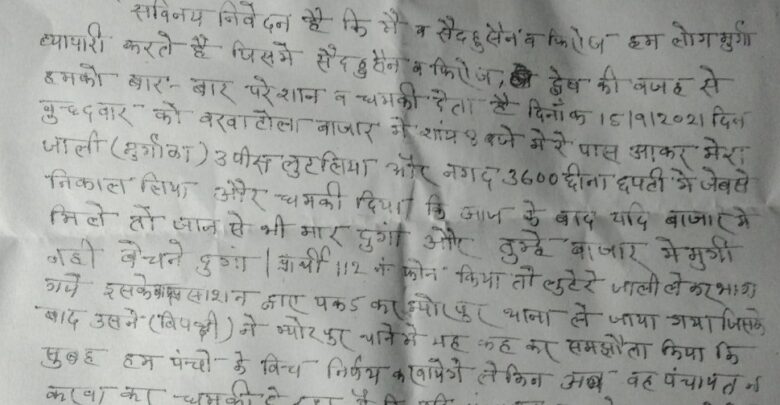 सविनय निवेदन है कि मै व सैदहुसैन व फिरोज हम लोग मुर्गा
व्यापारी करते है जिसमे सैदहुसैन व फिरोज, द्वेष की वजह से
हमको बार-बार परेशान व धमकी देता है दिनाँक 15/9/2021 दिन
बुध्दवार को बरवाटोला बाजार मे शांय बजे मेरे पास आकर मेरा
जाली (मुर्गीका) 3 पीस लुट लिया और नगद 3600 छीना छपटी मे जेब से
निकाल लिया और धमकी दिया कि आज के बाद यदि बाजार मे
मिले तो जान से भी मार दुगां और तुम्हे बाजार मे मुर्गी
नही बेचने दुगां | प्रार्थी 112 नं फोन किया तो लुटेरे जाली लेकर भाग
गये इसके साशन आए पकड कर म्योरपुर थाना ले जाया गया जिसके
बाद उसने (विपक्षी) ने म्योरपुर थाने मे यह कह कर समझौता किया कि
सुबह हम पंचो के विच निर्णय करवायेगे लेकिन अब वह पंचायत न
करवा कर धमकी दे रहा है कि यदि